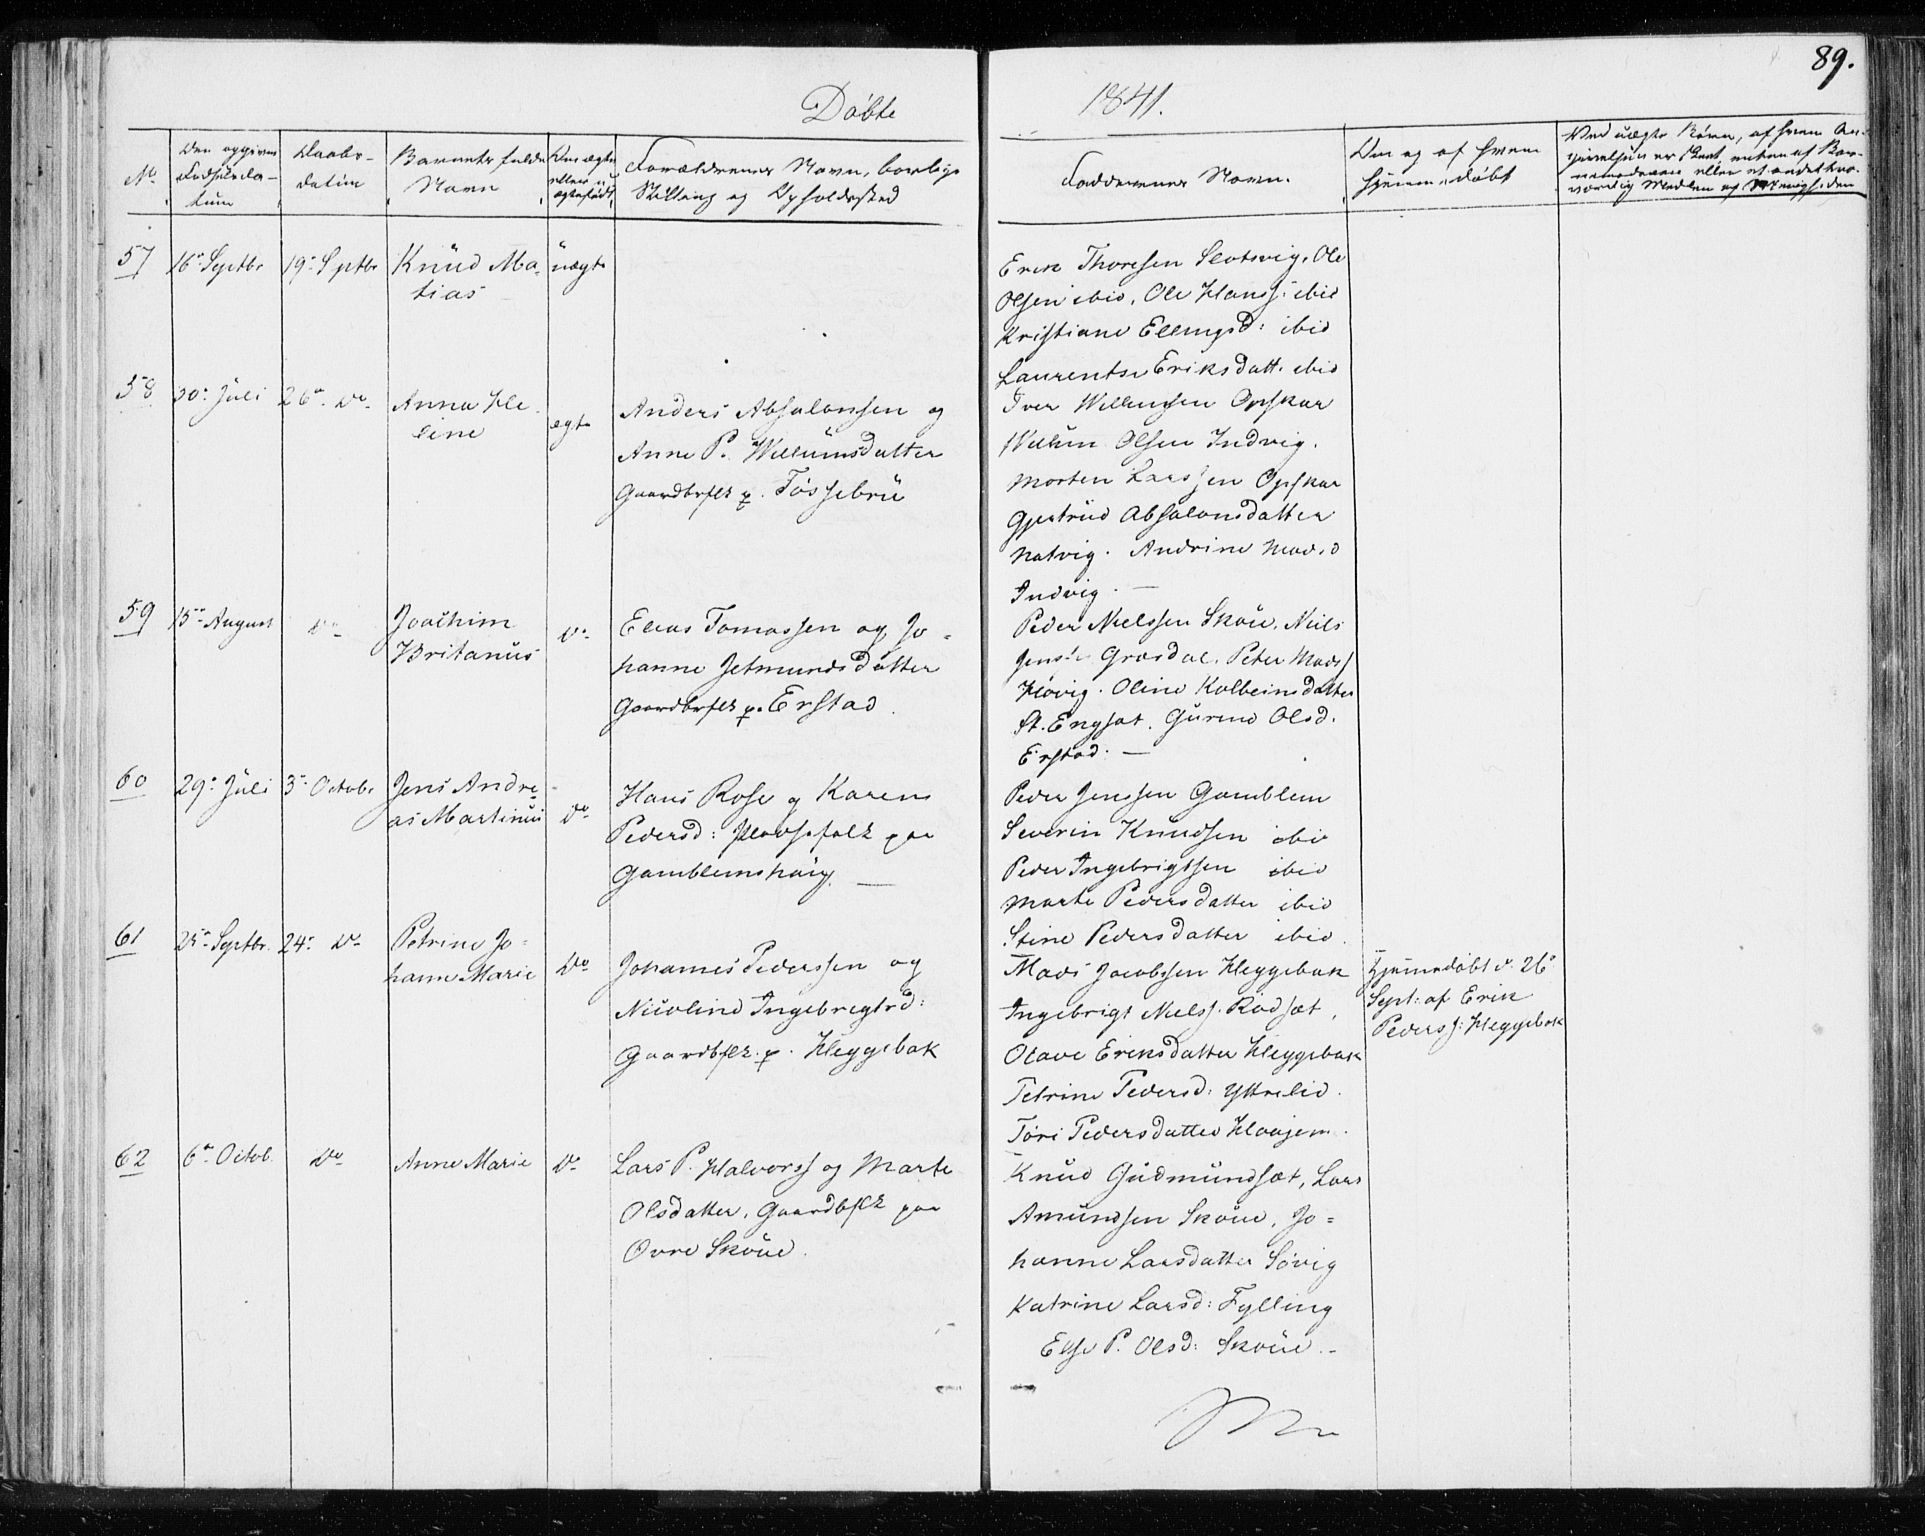 89.
Døbte
1841.
No
Den opgivne Fødselsdatum
Daabsdatum
Barnets fulde Navn
Om ægte eller uægtefødt
Forældrenes Navn, borgelige Stilling og Opholdssted
Faddernes Navn.
Om og af hvem hjemmedøbt
57
16de Septbr
19de Sptbr
Knud Ma-
tias
uægte
Erik Thoresen Slotsvig, Ole
Olsen ibid, Ole Hanss: ibid
Kristiane Ellingsd: ibid
Laurentse Eriksdatt. ibid
58
30te Juli
26de Do
Anna He-
line
egte
Anders Absalonsen og
Anne P. Willumsdatter
Gaardbrflk p. Fossebru
Iver Willumsen Opskar
Willum Olsen Indvig.
Morten Larssen Opskar
Gjertrud Absalonsdatter
Natvig. Andrine Mads.d
Indvig. —
59
15de August
Do
Joachim
Britanus
Do
Elias Tomassen og Jo-
hanne Jetmundsdatter
Gaardbrflk p. Erstad.
Peder Nielssen Skoue, Niels
Jens: Grøsdal. Peter Madss
Høvig. Oline Kolbeinsdatter
St. Engsæt. Gurine Olsd.
Erstad. —
60
29de Juli
3de Octobr
Jens Andre-
as Martinus
Do
Hans Rose og Karen
Pedersd: Huusfolk paa
Gamblemshaug. —
Peder Jenssen Gamblem
Severin Knudsen ibid
Peder Ingebrigtsen ibid
Marte Pedersdatter ibid
Stine Pedersdatter ibid.
61
25de Septbr.
24de Do
Petrine Jo-
hanne Marie
Do
Johannes Pederssen og
Nicoline Ingebregtsd:
Gaardbflk. p. Heggebak
Mads Jacobssen Heggebak
Ingebrigt Nielss. Rødsæt,
Olave Eriksdatter Heggebak
Petrine Pedersd: Yttrelid.
Tori Pedersdatter Haajem.
Hjemmedøbt d. 26de
Sept: af Erik
Pederss: Heggebak
62
6te Octob.
Do
Anne Marie
Do
Lars P. Halvorss og Marte
Olsdatter, Gaardbflk paa
Ovre Skoue.
Knud Gudmundsæt, Lars
Amundsen Skoue, Jo-
hanne Larsdatter Søvig
Katrine Larsd: Fylling
Else P. Olsd: Skoue. -